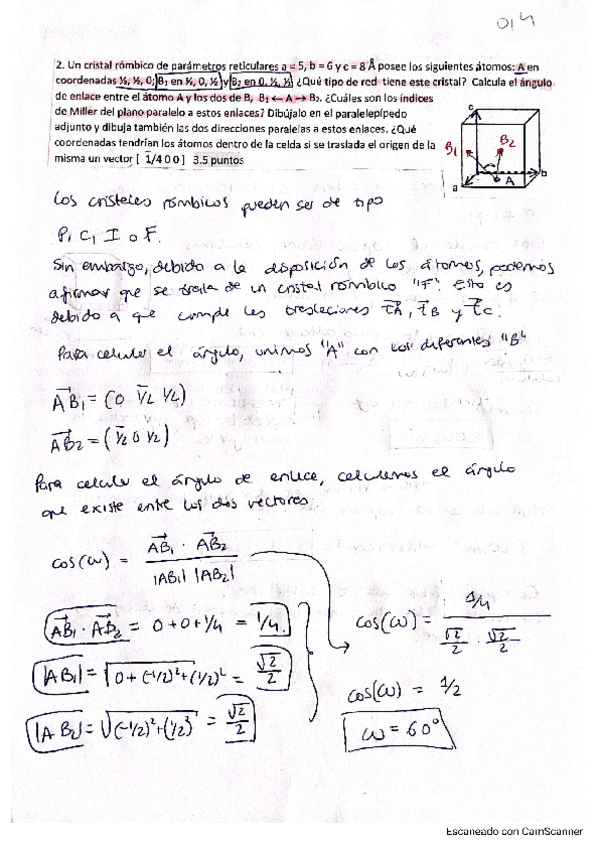 0,4
2. Un cristal rómbico de parámetros reticulares a = 5, b = 6 y c = 8 Å posee los siguientes átomos: A en
coordenadas ½, ½, 0; B₁ en ½, 0, ½ y B₂ en 0, ½, ½ ¿Qué tipo de red tiene este cristal? Calcula el ángulo
de enlace entre el átomo A y los dos de B, B₁ ← A → B₂. ¿Cuáles son los índices
de Miller del plano paralelo a estos enlaces? Dibújalo en el paralelepípedo
adjunto y dibuja también las dos direcciones paralelas a estos enlaces. ¿Qué
coordenadas tendrían los átomos dentro de la celda si se traslada el origen de la
misma un vector [ 1̅/4 0 0 ] 3.5 puntos
c
B₁
B₂
A
b
a
Los cristales rómbicos pueden ser de tipo
P, C, I o F.
Sin embargo, debido a la disposición de los átomos, podemos
afirmar que se trata de un cristal rómbico "F". Esto es
debido a que cumple las traslaciones t⃗A, t⃗B y t⃗C.
Para calcular el ángulo, unimos "A" con los diferentes "B"
AB₁ = (0 1̅/2 1/2)
AB₂ = (1̅/2 0 1/2)
Para calcular el ángulo de enlace, calculamos el ángulo
que existe entre los dos vectores.
cos(ω) = AB₁ · AB₂ / |AB₁| |AB₂|
AB₁ · AB₂ = 0+0+1/4 = 1/4
|AB₁| = √0+(-1/2)²+(1/2)² = √2/2
|AB₂| = √(-1/2)²+(1/2)² = √2/2
cos(ω) = 1/4 / √2/2 · √2/2
cos(ω) = 1/2
ω = 60°
Escaneado con CamScanner